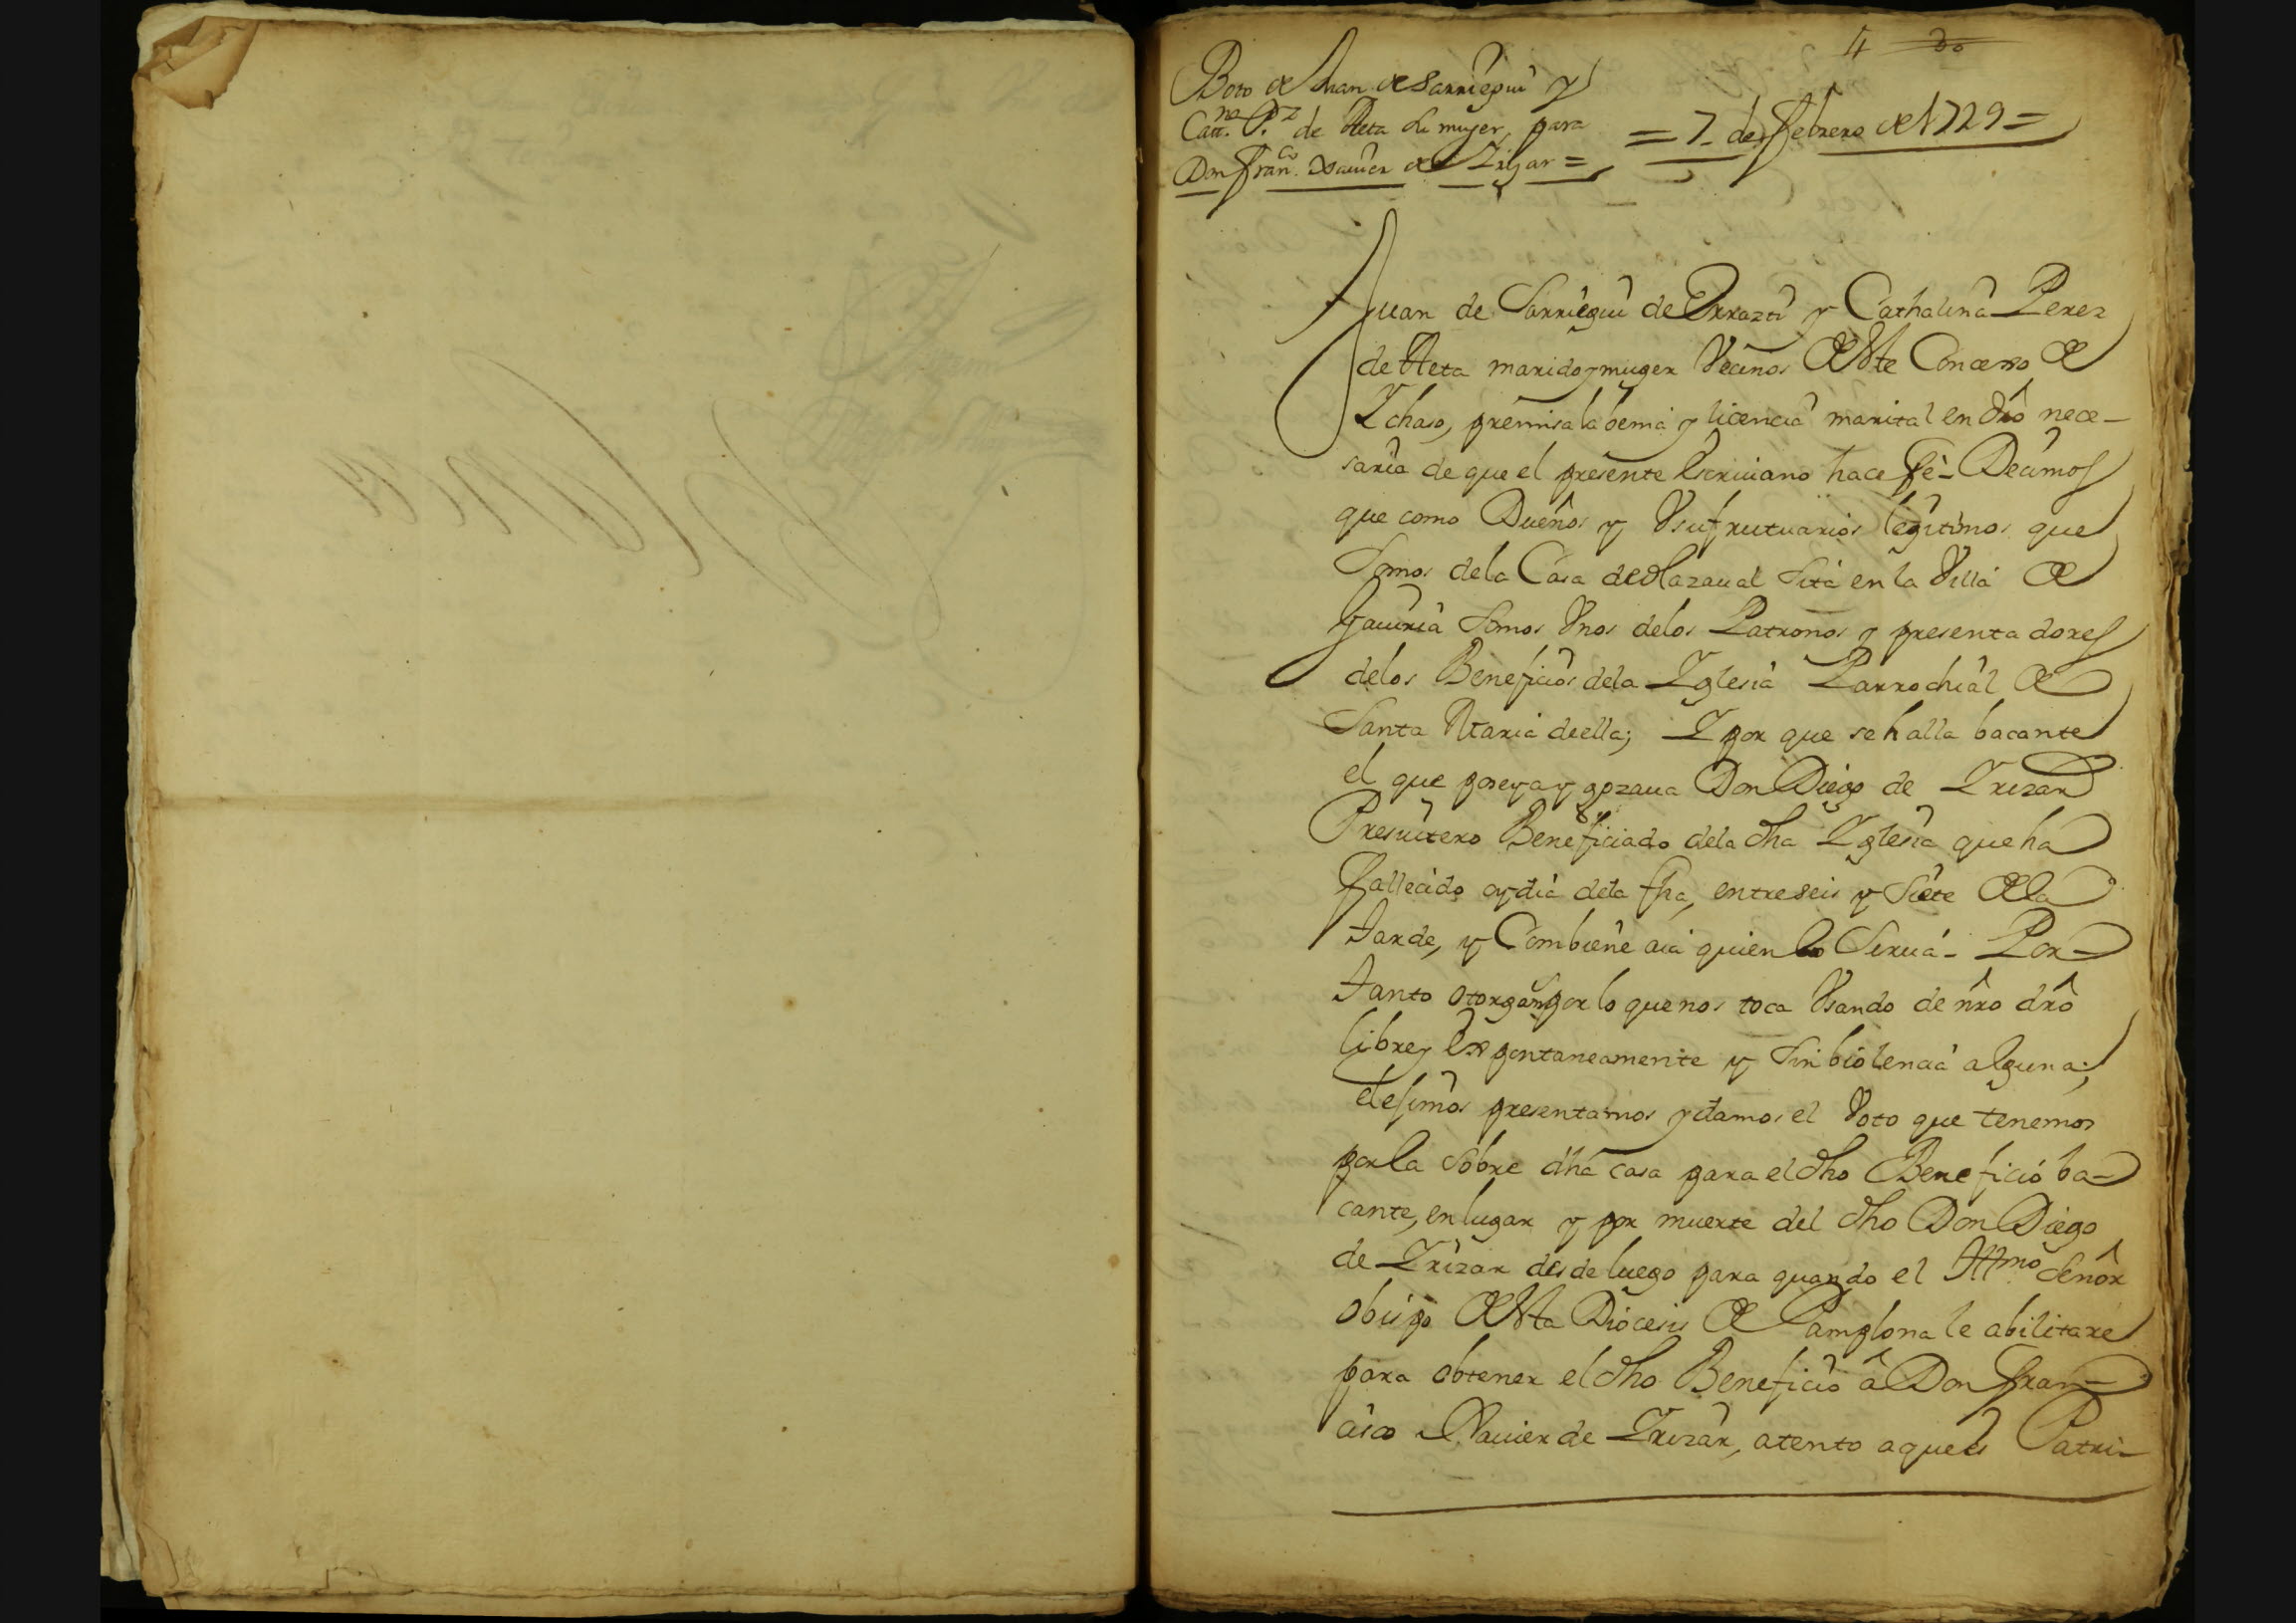 4 30
Boto de Juan de Sarriegui y
Catt.na P.z de Aeta su muger, para
Don Fran.co Xauier de Yrizar =
= 7 de febrero de 1729 =
Juan de Sarriegui de Errazti y Cathalina Perez
de Aeta marido y muger Vecinos de este Concexo de
Ychaso, premisa la benia y licencia marital en dro nece-
saria de que el presente escriuano hace feè - Decimos
que como Dueños y Vsufrutuarios legitimos que
Somos dela Casa de Olazaual Sita en la Villa de
Gauiria Somos Vnos delos Patronos y presentadores
delos Beneficios dela Yglesia Parrochial de
Santa Maria de ella; Y por que se halla bacante
el que poseya y gozaua Don Diego de Yrizar
Presuitero Beneficiado dela dha Yglesia que ha
fallecido oy dia dela fha, entre seis y Siete de la
tarde, y Combiene aia quien lo Serua - Por
tanto otorgam por lo que nos toca Vsando de nro dro
libre y expontaneamente y Sin biolencia alguna;
elesimos presentamos y damos el Voto que tenemos
por la Sobre dha casa para el dho Beneficio ba-
cante, en lugar y por muerte del dho Don Diego
de Yrizar desde luego para quando el Illmo Señor
Obispo de esta Diocesis de Pamplona le abilitare
para obtener el dho Beneficio â Don Fran-
cisco Xauier de Yrizar, atento aque es Patri-